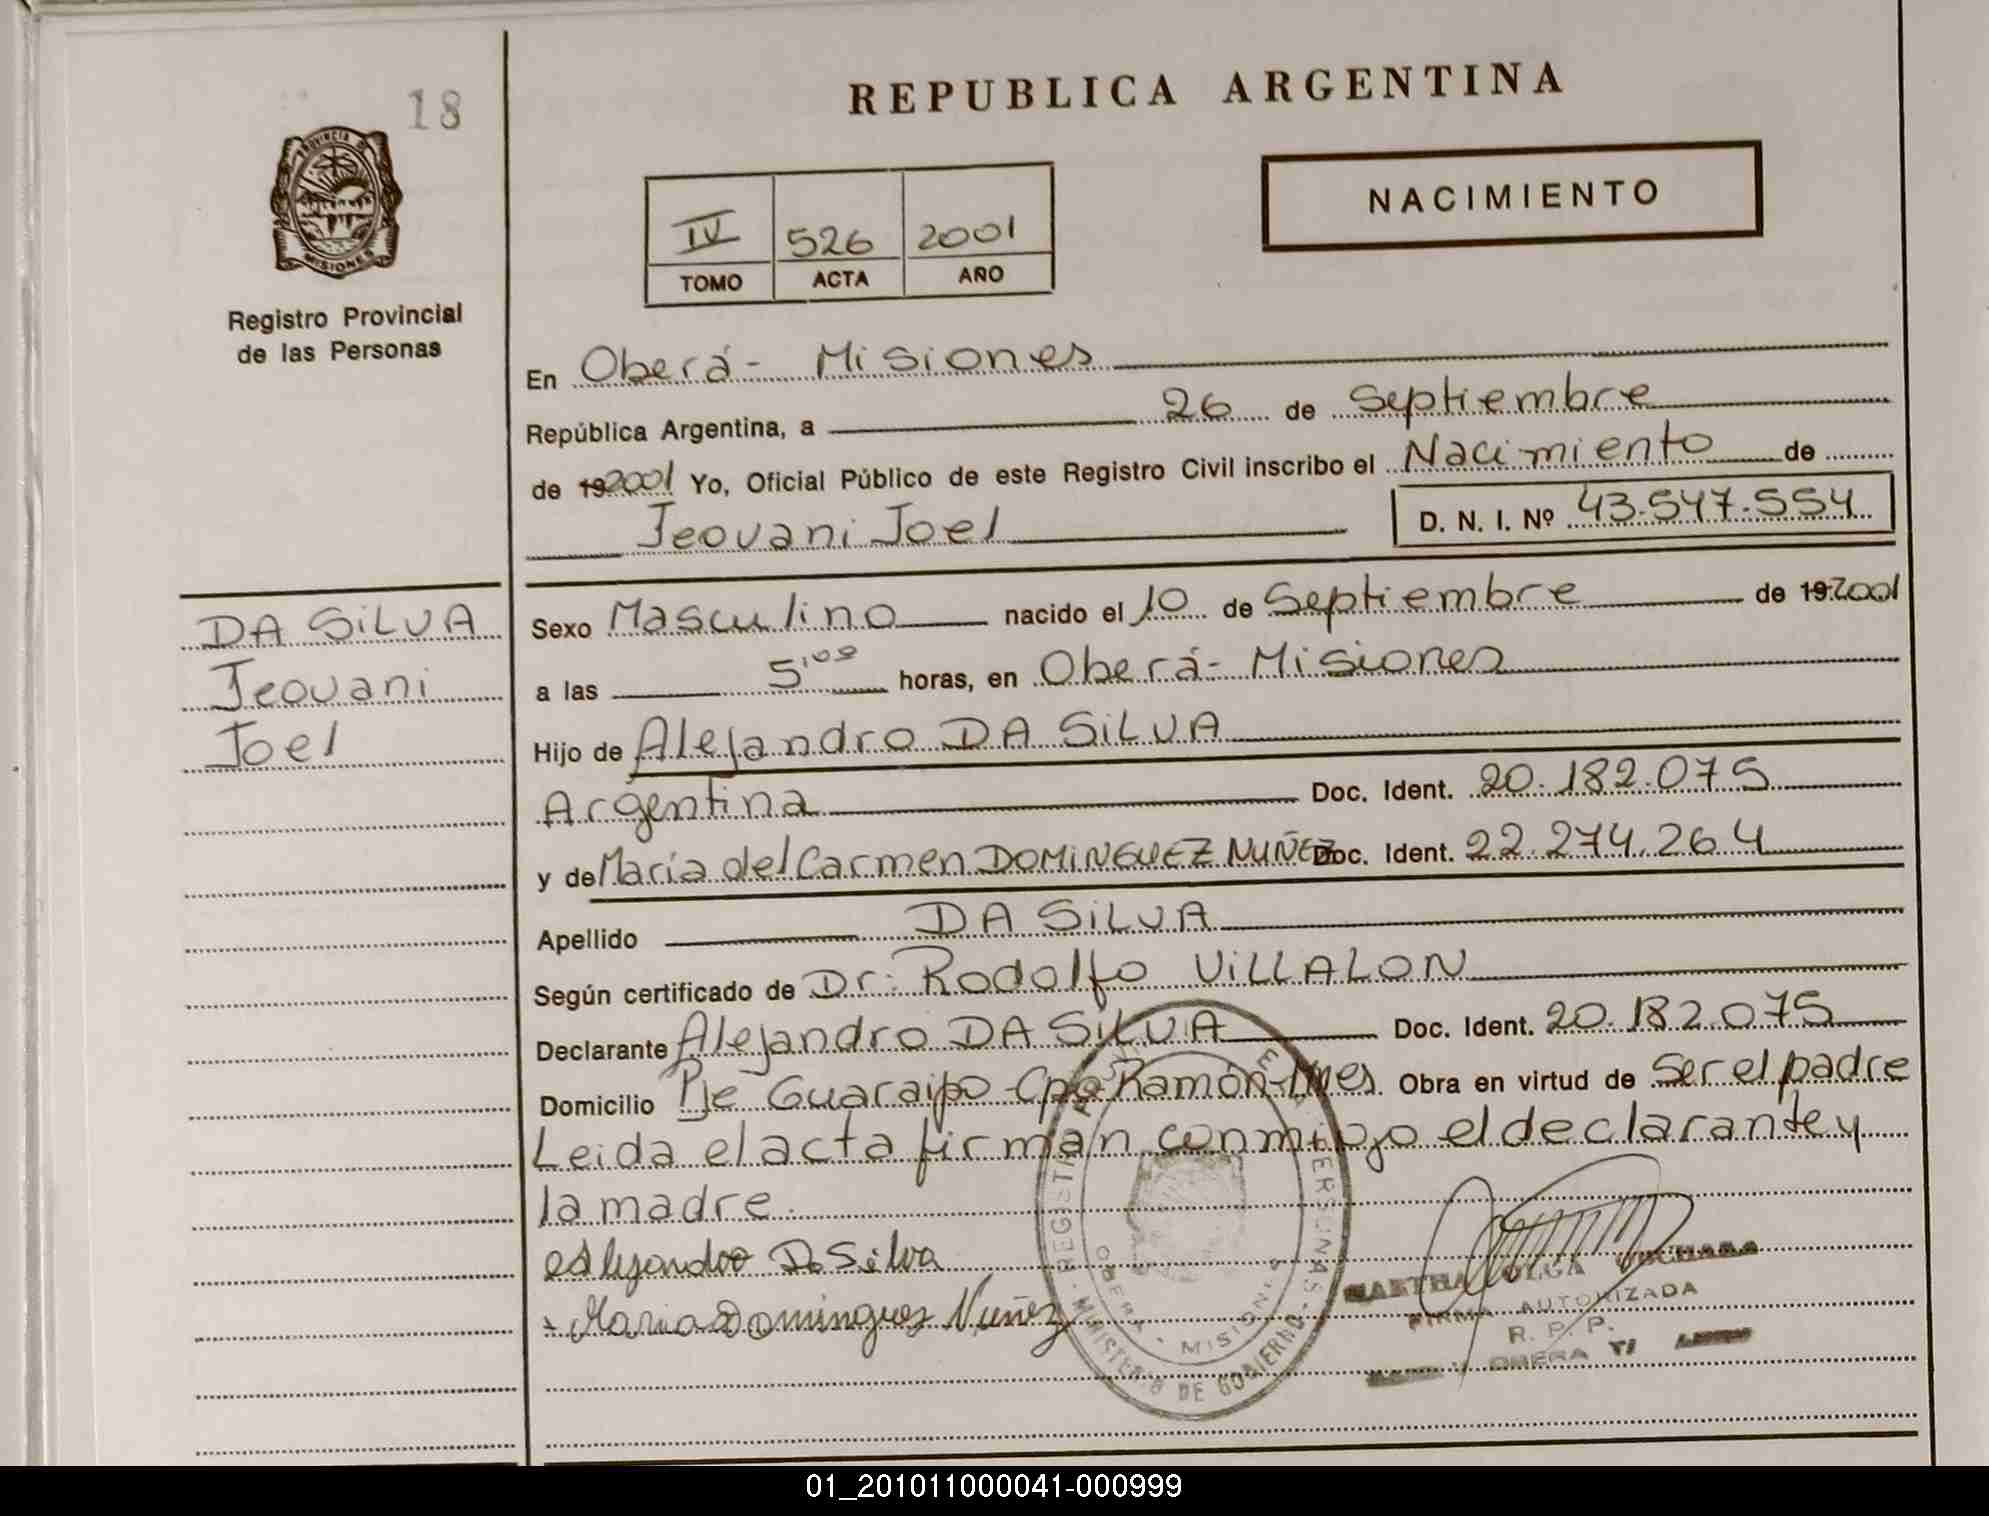 18
REPUBLICA ARGENTINA
NACIMIENTO
IV 526 2001
TOMO ACTA AÑO
PROVINCIA DE
MISIONES
Registro Provincial
de las Personas
En Oberá - Misiones
República Argentina, a 26 de Septiembre
de 192001 Yo, Oficial Público de este Registro Civil inscribo el Nacimiento de
Jeovani Joel D. N. I. Nº 43.547.554
DA SILVA
Jeovani
Joel
Sexo Masculino nacido el 10 de Septiembre de 192001
a las 5,00 horas, en Oberá - Misiones
Hijo de Alejandro DA SILVA
Argentina Doc. Ident. 20.182.075
y de María del Carmen DOMINGUEZ NUÑEZ Doc. Ident. 22.274.264
Apellido DA SILVA
Según certificado de Dr. Rodolfo VILLALON
Declarante Alejandro DA SILVA Doc. Ident. 20.182.075
Domicilio Pje Guaraipo Cpo Ramón - Mnes Obra en virtud de Ser el padre
Leida el acta firman conmigo el declarante y
la madre.
Alejandro Da Silva
Maria Dominguez Nuñez
MINISTERIO DE GOBIERNO
OBERA - MISIONES
MARTHA OLGA
FIRMA AUTORIZADA
R. P. P.
OBERA
01_201011000041-000999